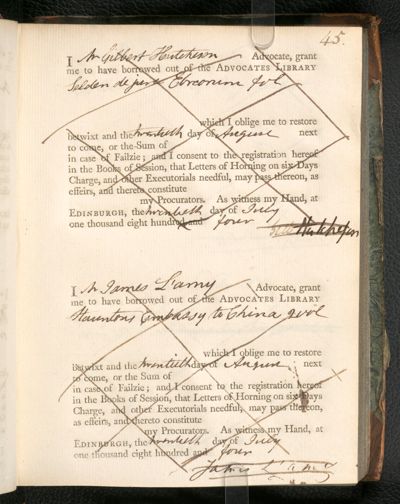 45.
I Mr Gilbert Hutcheson Advocate, grant
me to have borrowed out of the ADVOCATES LIBRARY
Selden de jure Ebreorum fol
which I oblige me to restore
betwixt and the twentieth day of August next
to come, or the Sum of
in case of Failzie; and I consent to the registration hereof
in the Books of Session, that Letters of Horning on six Days
Charge, and other Executorials needful, may pass thereon, as
effeirs, and thereto constitute
my Procurators. As witness my Hand, at
EDINBURGH, the twentieth day of July
one thousand eight hundred and four Hutcheson
I Mr James L'amy Advocate, grant
me to have borrowed out of the ADVOCATES LIBRARY
Stauntons Embassy to China 2 vol
which I oblige me to restore
betwixt and the twentieth day of August next
to come, or the Sum of
in case of Failzie; and I consent to the registration hereof
in the Books of Session, that Letters of Horning on six Days
Charge, and other Executorials needful, may pass thereon,
as effeirs, and thereto constitute
my Procurators. As witness my Hand, at
EDINBURGH, the twentieth day of July
one thousand eight hundred and four
James L'amy